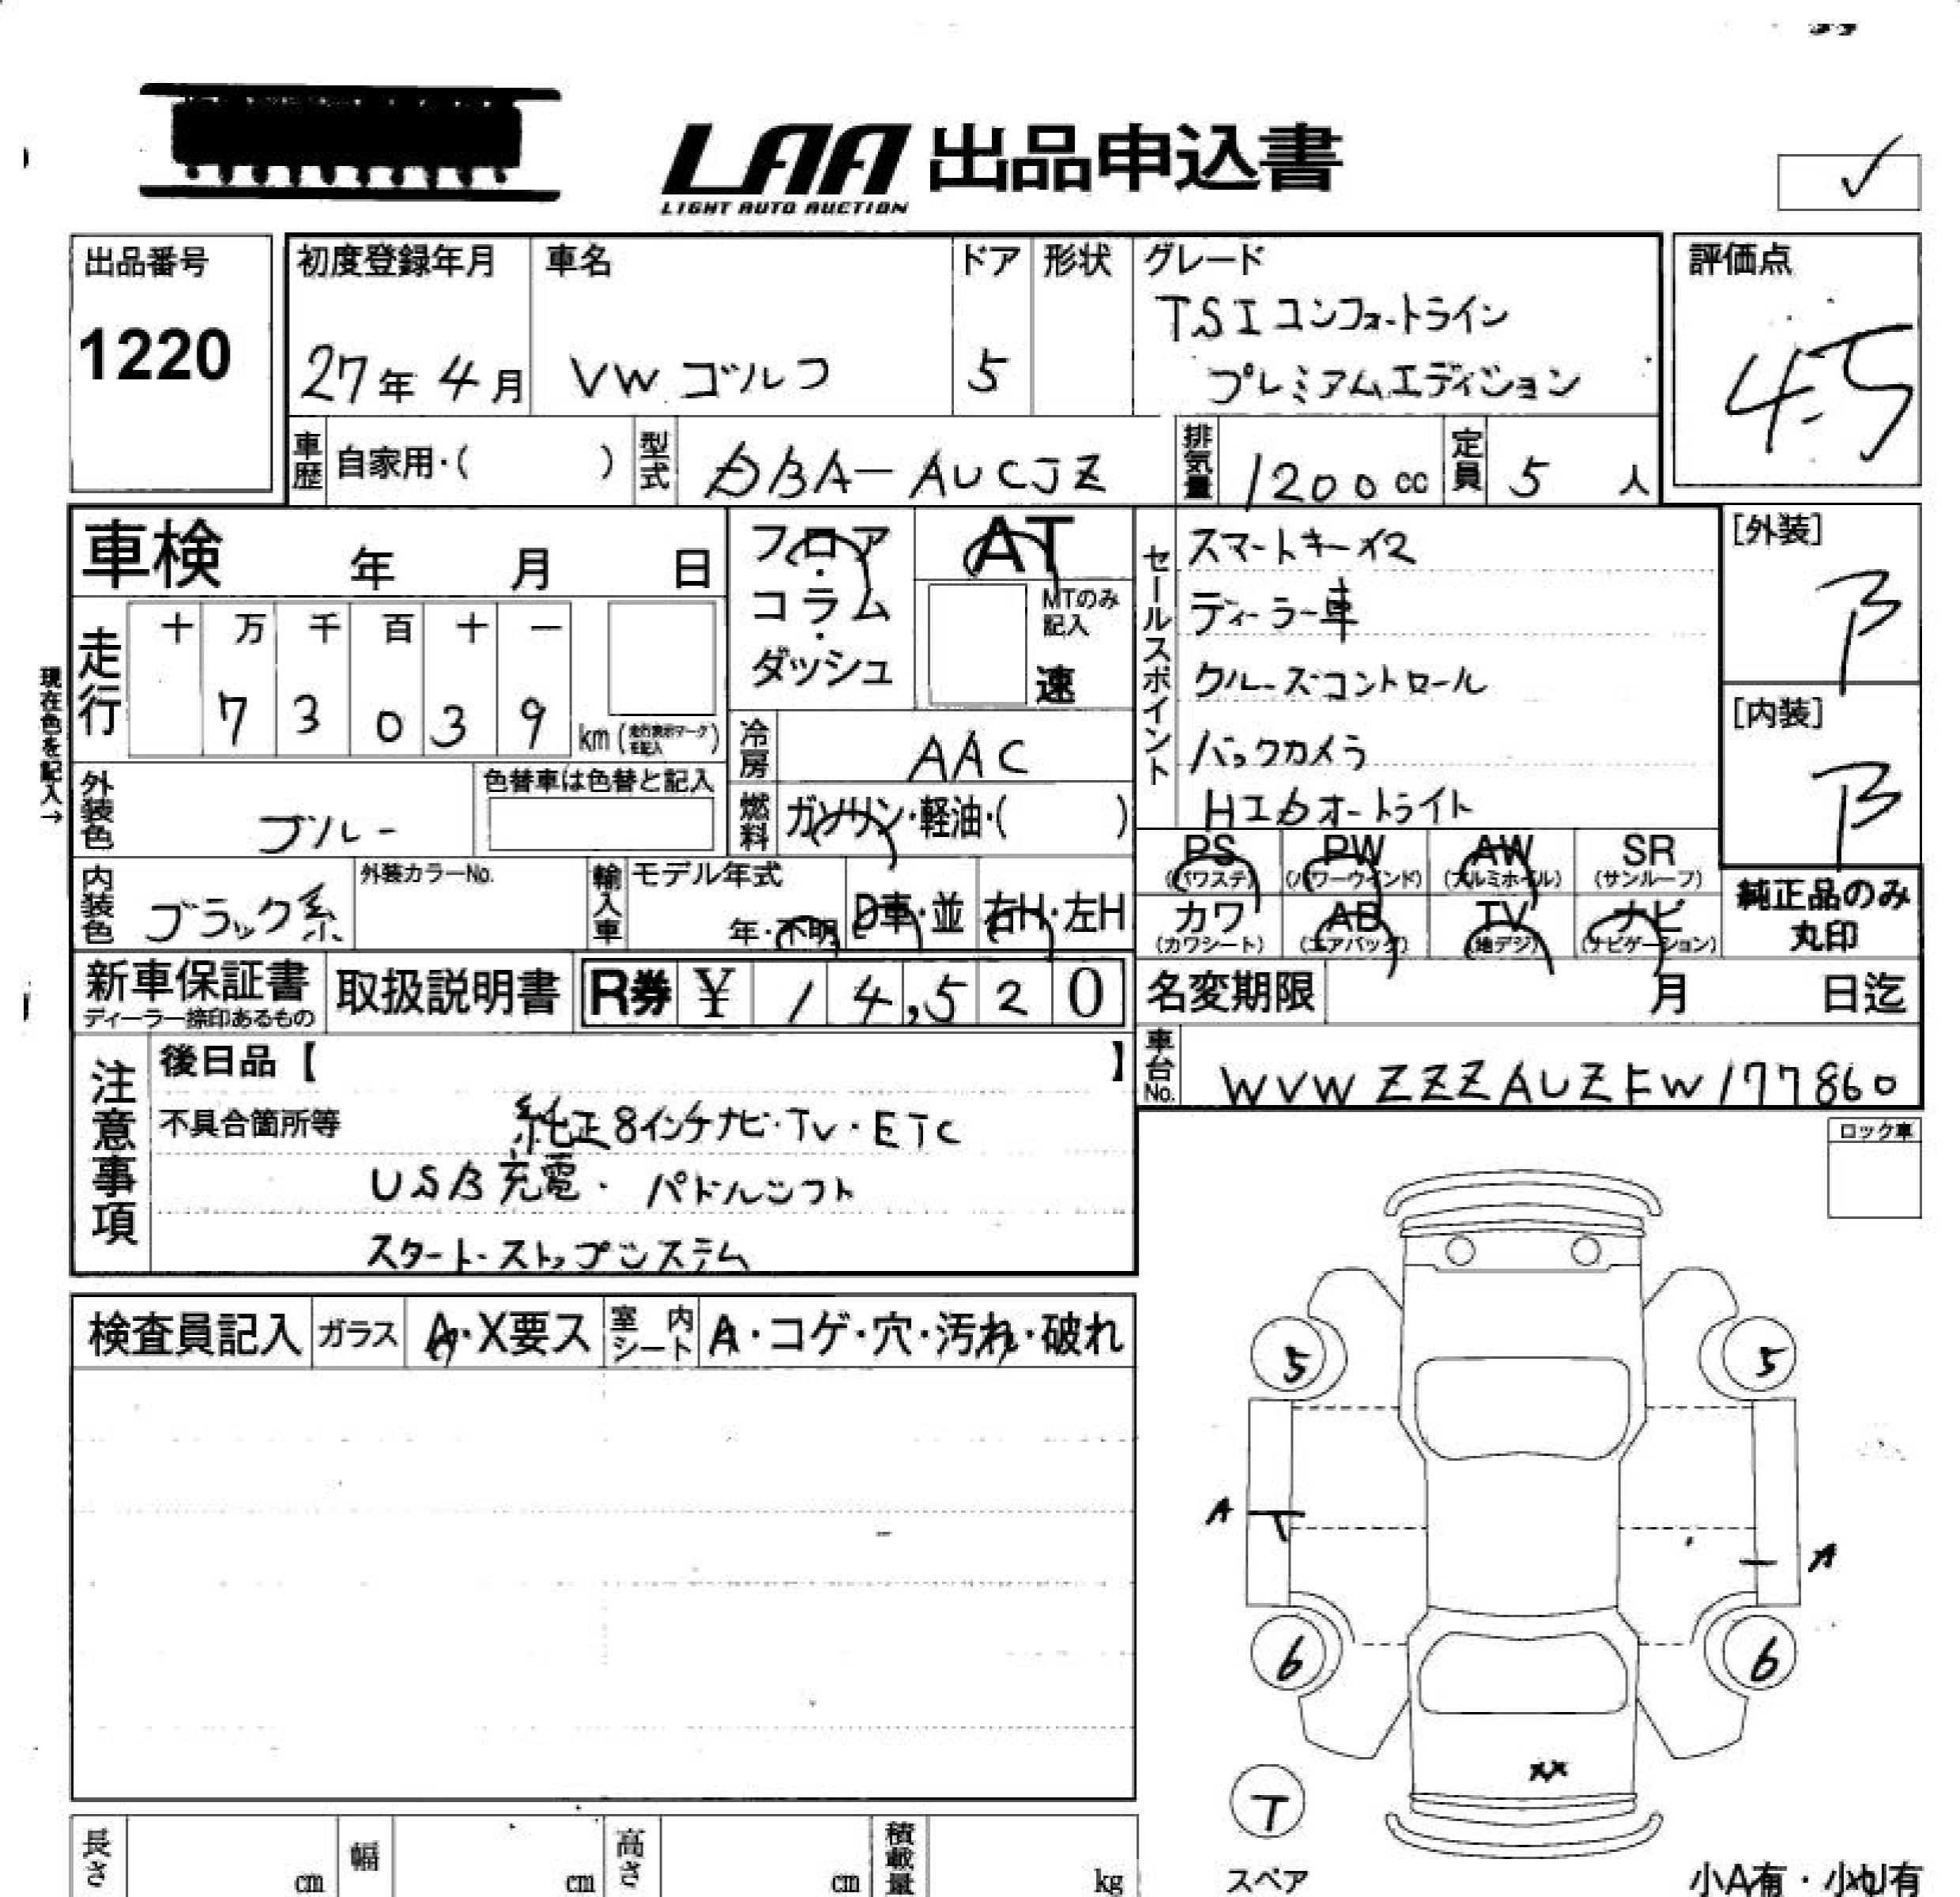 LAA 出品申込書
LIGHT AUTO AUCTION
出品番号
1220
初度登録年月
27年 4月
車名
VW ゴルフ
ドア
5
形状
グレード
TSI コンフォートライン
プレミアムエディション
評価点
4.5
車歴
自家用・( )
型式
DBA-AUCJZ
排気量
1200cc
定員
5 人
車検 年 月 日
現在色を記入→
走行
十 万 千 百 十 一
7 3 0 3 9
km (走行表示マークを記入)
フロア
・
コラム
・
ダッシュ
AT
MTのみ
記入
速
冷房
AAC
燃料
ガソリン・軽油・( )
セールスポイント
スマートキーX2
ディーラー車
クルーズコントロール
バックカメラ
HIDオートライト
[外装]
B
[内装]
B
外装色
ブルー
色替車は色替と記入
内装色
ブラック系
外装カラーNo.
輸入車
モデル年式
年・不明
D車・並
右H・左H
PS
(パワステ)
PW
(パワーウインド)
AW
(アルミホイル)
SR
(サンルーフ)
カワ
(カワシート)
AB
(エアバッグ)
TV
(地デジ)
ナビ
(ナビゲーション)
純正品のみ
丸印
新車保証書
ディーラー捺印あるもの
取扱説明書
R券 ¥ 14,520
名変期限 月 日迄
車台No.
WVWZZZAUZFW177860
注意事項
後日品【 】
不具合箇所等
純正8インチナビ・TV・ETC
USB充電・パドルシフト
スタート・ストップシステム
ロック車
検査員記入
ガラス
A・X要ス
室内シート
A・コゲ・穴・汚れ・破れ
5
5
A
A
6
6
XX
T
スペア
小A有・小U有
長さ
cm
幅
cm
高さ
cm
積載量
kg